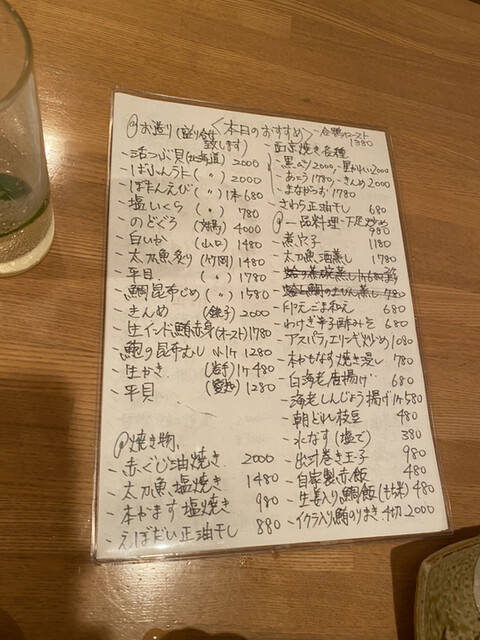 <本日のおすすめ>
お造り(盛り合せ
致します)
活つぶ貝(北海道) 2000
ばふんうに ( 〃 ) 2000
ぼたんえび ( 〃 ) 1本 680
塩いくら ( 〃 ) 780
のどぐろ (対馬) 4000
白いか (山口) 1480
太刀魚炙り (竹岡) 1480
平目 ( 〃 ) 1780
鯛昆布〆 ( 〃 ) 1580
きんめ (銚子) 2000
生インド鮪赤身(オースト) 1780
鮑の昆布むし 1280
生かき (岩手) 1ケ 480
平貝 (愛知) 1280
焼き物
赤ぐじ油焼き 2000
太刀魚塩焼き 1480
本かます塩焼き 980
えぼだい正油干し 880
合鴨ロースト
1380
西京焼き各種
黒ムツ2000, 2000
あこう1780, きんめ2000
まながつお 1780
さわら正油干し 680
一品料理 下足炒め
980
煮穴子 1180
太刀魚酒蒸し 1780
蛤の 蒸し 680
蛤と鯛の 蒸し 780
ごま和え 680
わけぎ辛子酢みそ 680
アスパラ,エリンギ炒め 1080
本かもなす焼き浸し 780
白海老唐揚げ 680
海老しんじょう揚げ1ケ580
朝どれ枝豆 480
水なす(塩で) 380
出汁巻き玉子 980
自家製赤飯 480
生姜入り鯛飯(もち米) 480
イクラ入り鮪のりまき 4切 2000